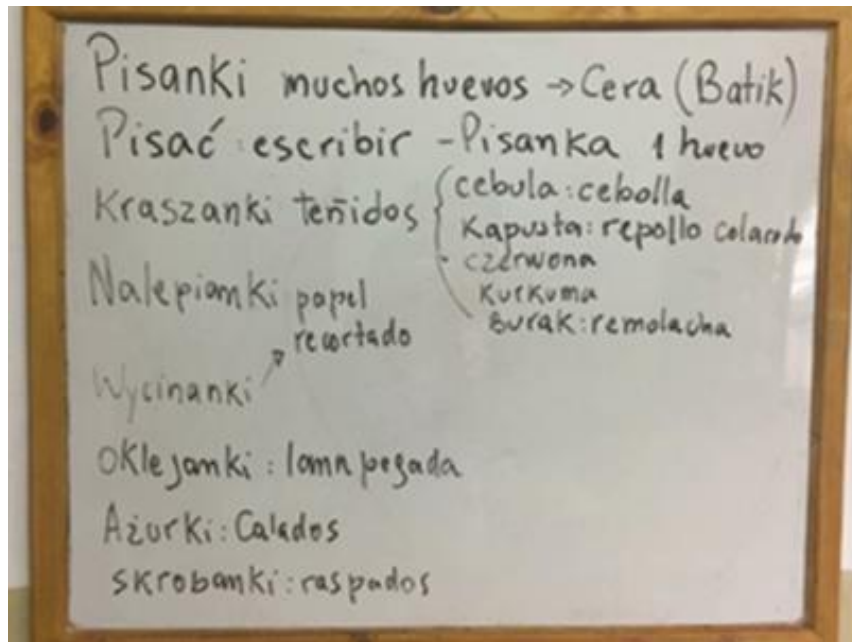 Pisanki muchos huevos → Cera (Batik)
Pisać : escribir - Pisanka 1 huevo
Kraszanki teñidos { cebula : cebolla
Kapusta : repollo colorado
czerwona
Kurkuma
Burak : remolacha
Nalepianki papel
recortado
Wycinanki
Oklejanki : lana pegada
Ażurki : Calados
skrobanki : raspados